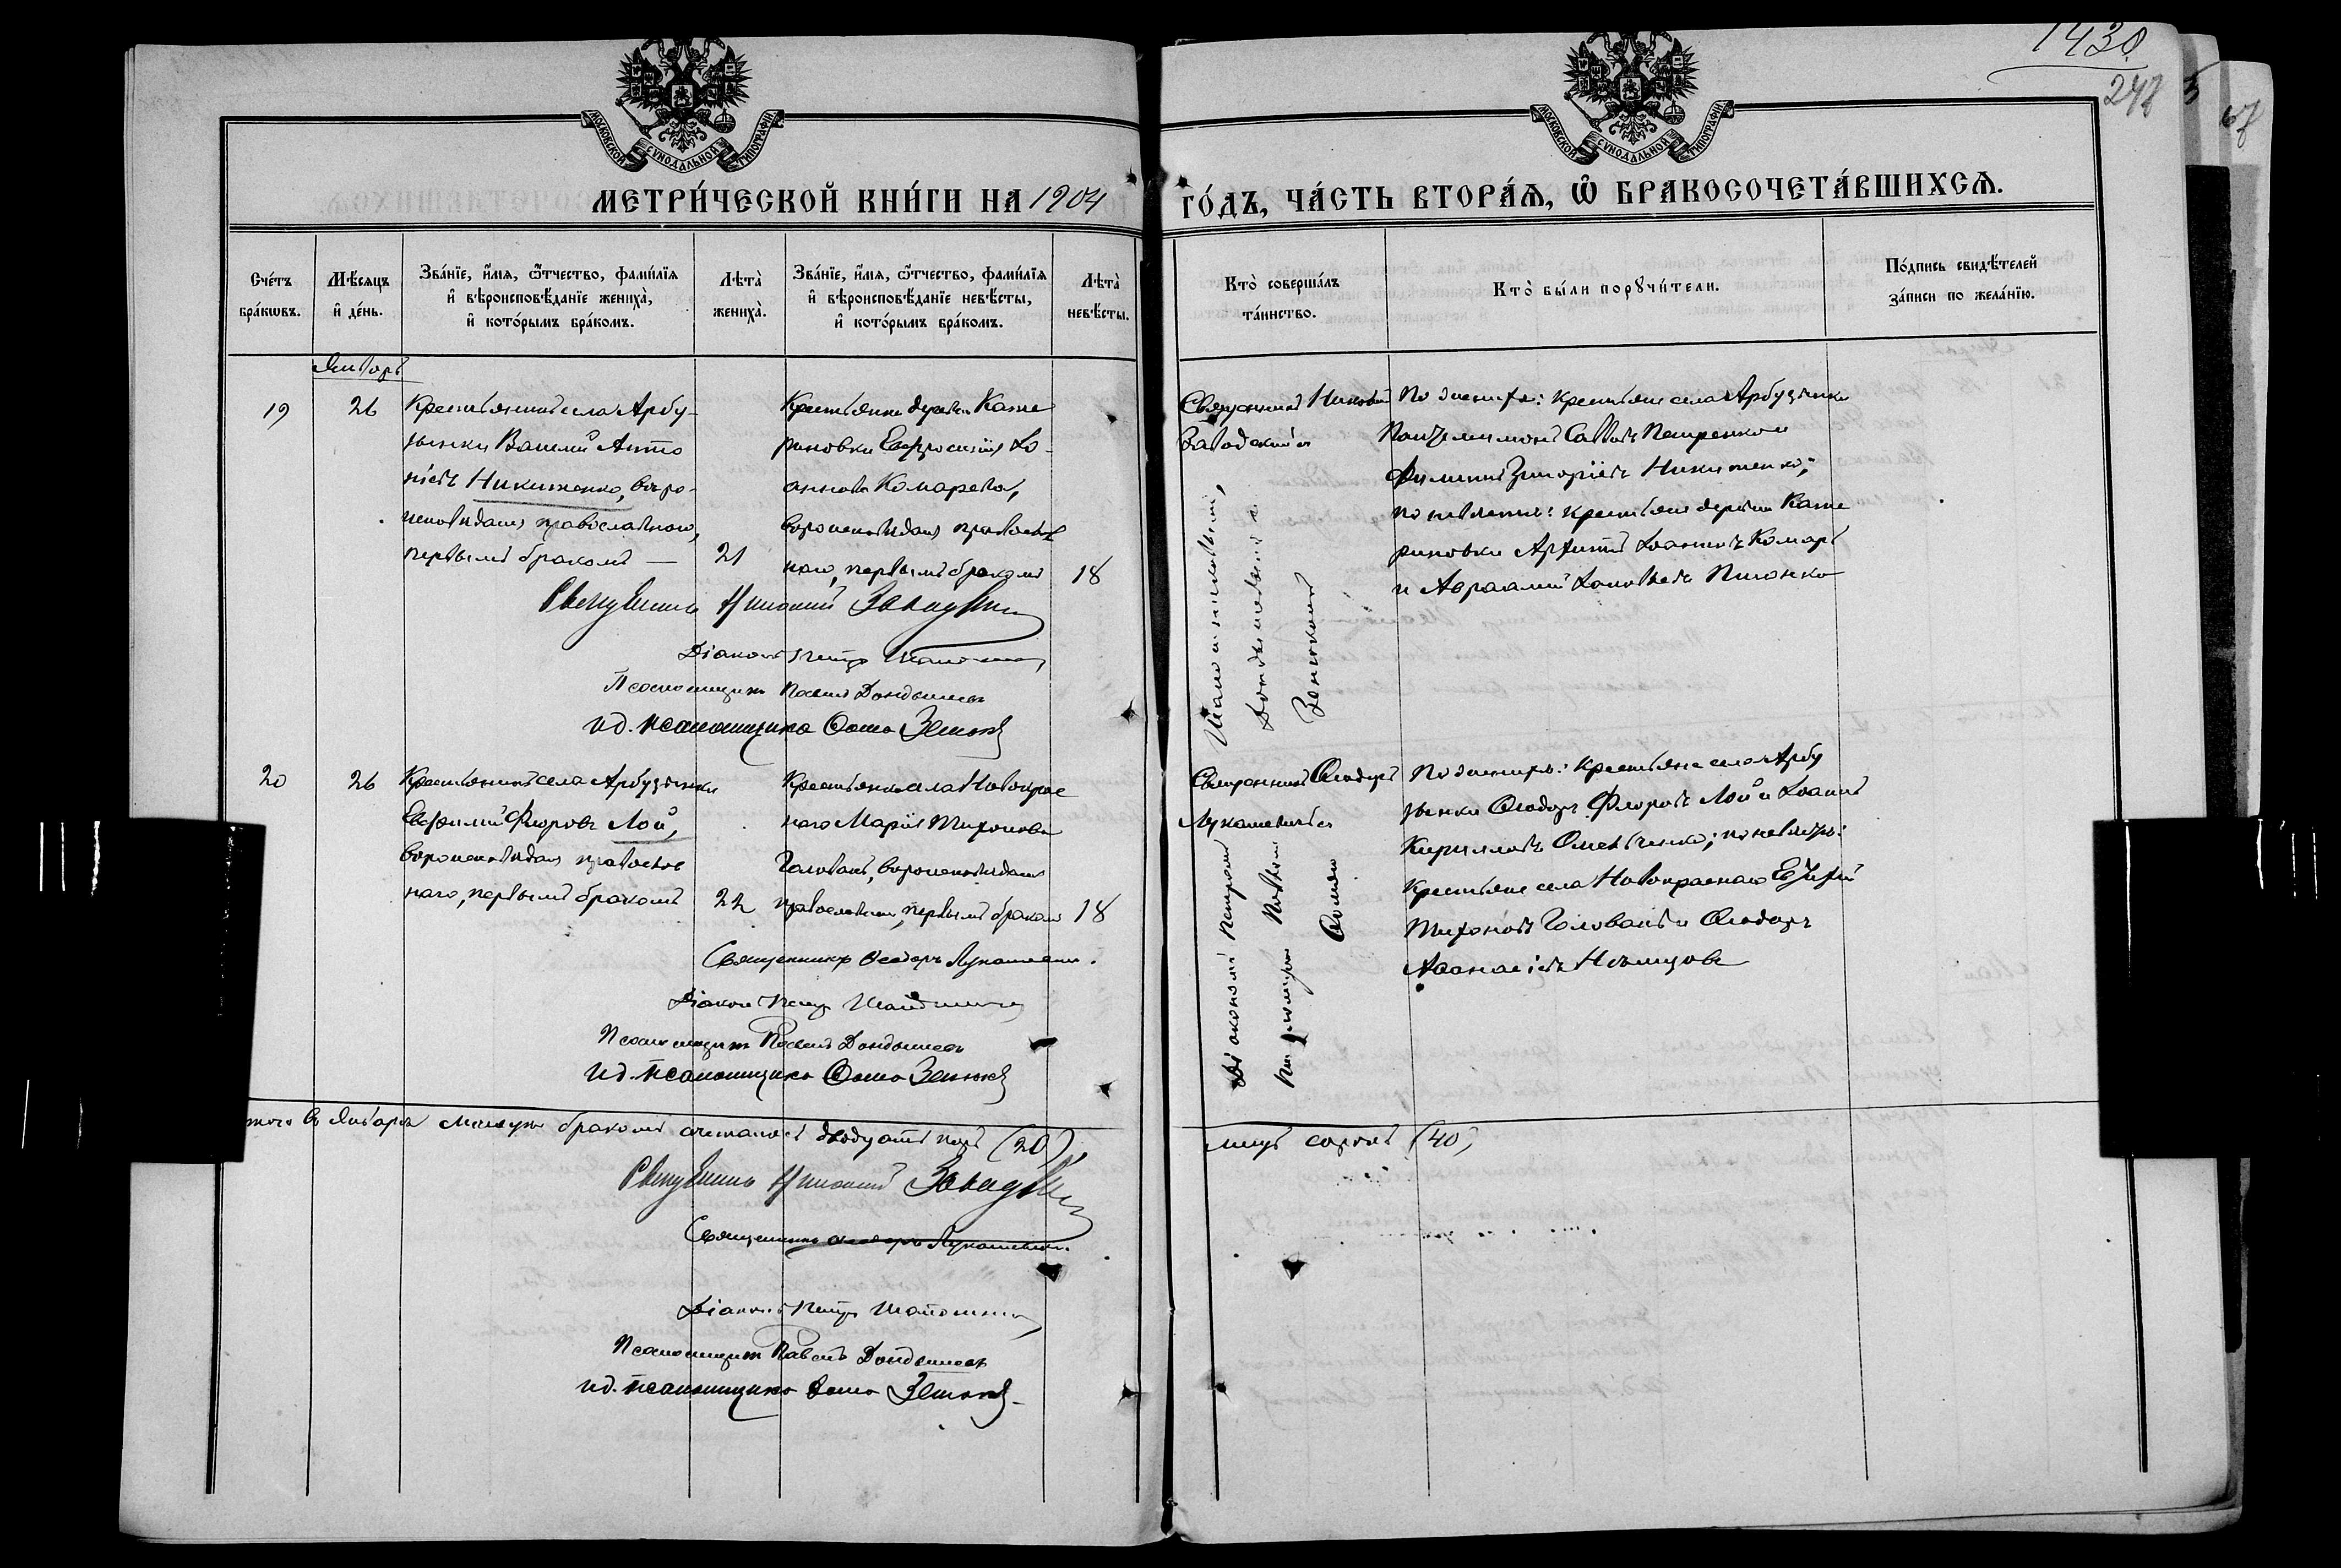 1430
248
МОСКОВСКОЙ СѴНОДАЛЬНОЙ ТИПОГРАФІИ
МОСКОВСКОЙ СѴНОДАЛЬНОЙ ТИПОГРАФІИ
МЕТРИ́ЧЕСКОЙ КНИ́ГИ НА 1904 ГО́ДЪ, ЧА́СТЬ ВТОРА́Ѧ, Ѽ БРАКОСОЧЕТА́ВШИХСѦ.
Сче́тъ бра́кѡвъ.
Мѣ́сяцъ и҆ де́нь.
Зва́нїе, и҆́мя, ѻ҆́тчество, фами́лїя
и҆ вѣроисповѣ́данїе жениха̀,
и҆ кото́рымъ бра́комъ.
Лѣта̀ жениха̀.
Зва́нїе, и҆́мя, ѻ҆́тчество, фами́лїя
и҆ вѣроисповѣ́данїе невѣ́сты,
и҆ кото́рымъ бра́комъ.
Лѣта̀ невѣ́сты.
Кто̀ соверша́лъ та́инство.
Кто̀ бы́ли порꙋчи́тели.
По́дпись свидѣ́телей за́писи по жела́нїю.
Январь
19
26
Крестьянинъ села Арбу-
зынки Василій Анто
ніевъ Никитенко, вѣро-
исповѣданія православнаго,
первымъ бракомъ —
21
Крестьянка деревни Кате
риновки Евфросинія Іо-
аннова Комарева,
вѣроисповѣданія православ
наго, первымъ бракомъ
18
Священникъ Николай
Заводскій съ
Діакономъ
По женихѣ: крестьяне села Арбузинки
Пантелимонъ Саввовъ Петренко и
Филиппъ Григоріевъ Никитенко;
по невѣстѣ: крестьяне деревни Кате
риновки Архипъ Іоанновъ Комарь
и Авраамій
Священникъ Николай Заводскій
Діаконъ Петръ
Псаломщикъ Павелъ
и д. псаломщика Ѳома
20
26
Крестьянинъ села Арбузинки
Евфимій Флоровъ Лой,
вѣроисповѣданія православ
наго, первымъ бракомъ
22
Крестьянка села Новокрас
наго Марія Тихонова
Голованъ, вѣроисповѣданія
православнаго, первымъ бракомъ
18
Священникъ Ѳеодоръ
Лукашевичъ съ
Діакономъ Петромъ
Ѳомою
По женихѣ: крестьяне села Арбу
зынки Ѳеодоръ Флоровъ Лой и Іоаннъ
Кирилловъ Омельченко; по невѣстѣ:
крестьяне села Новокраснаго Евфимій
Тихоновъ Голованъ и Ѳеодоръ
Аѳанасіевъ Нѣмцовъ
Священникъ Ѳеодоръ Лукашевичъ.
Діаконъ Петръ
Псаломщикъ Павелъ
и д. псаломщика Ѳома
того въ Январѣ мѣсяцѣ бракомъ сочеталось двадцать паръ (20), лицъ сорокъ (40)
Священникъ Николай Заводскій
Священникъ Ѳеодоръ Лукашевичъ.
Діаконъ Петръ
Псаломщикъ Павелъ
и д. псаломщика Ѳома